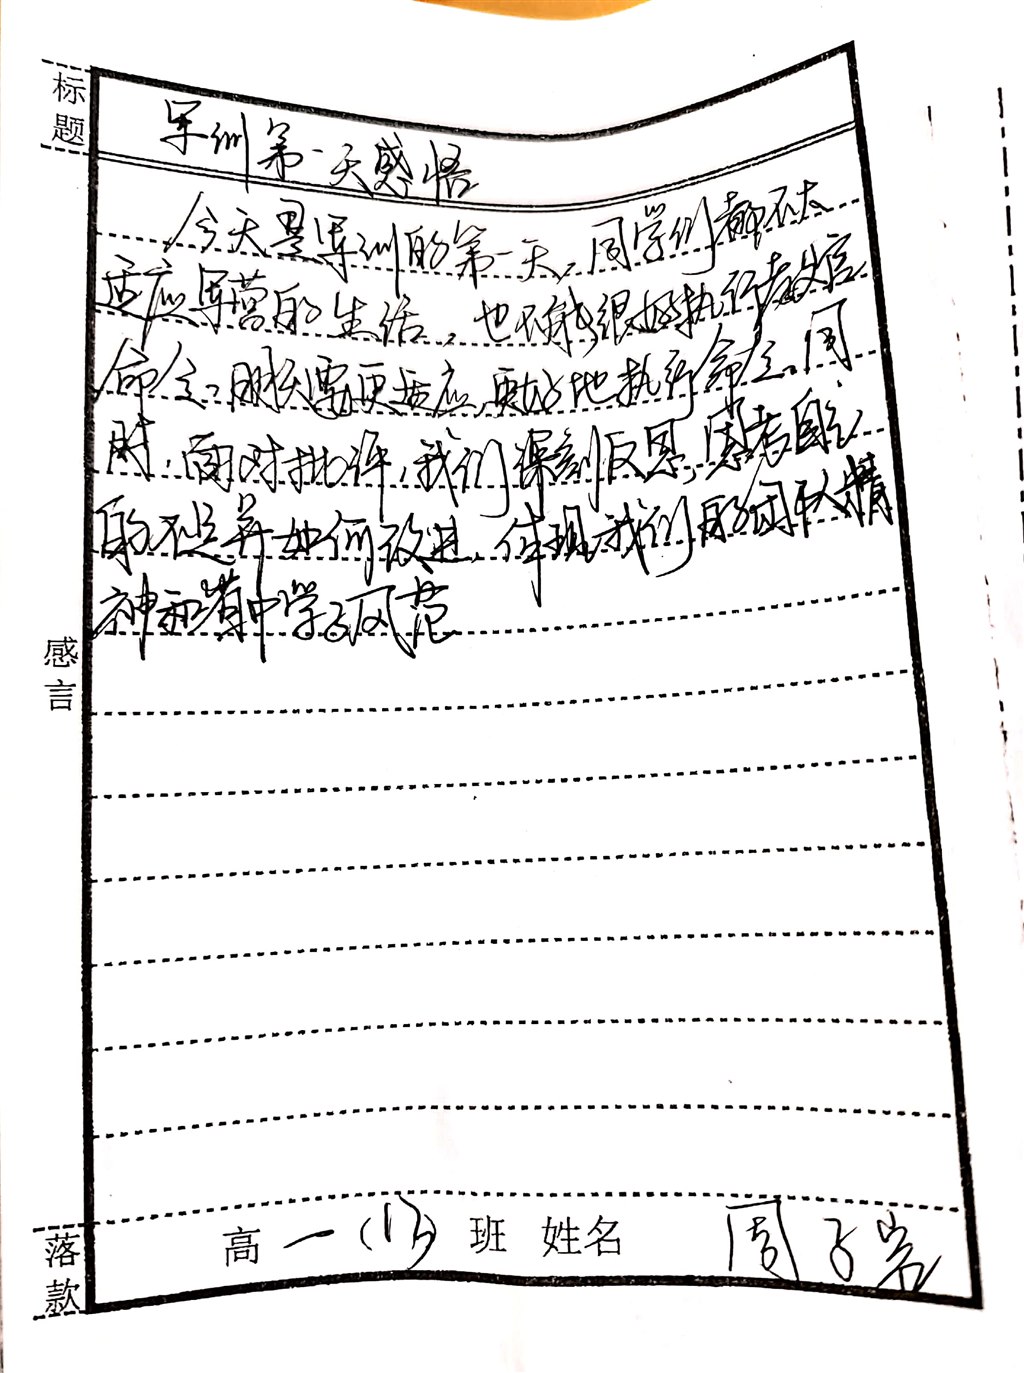 标题
军训第一天感悟
今天是军训的第一天。同学们都不太
适应军营的生活，也不能很好执行教官
命令。明天要更适应，更好地执行命令。同
时，面对批评，我们深刻反思，思考自己
的不足并如何改进，体现我们的团队精
神和省中学子风范
感言
落款
高一（13）班 姓名 周子岩